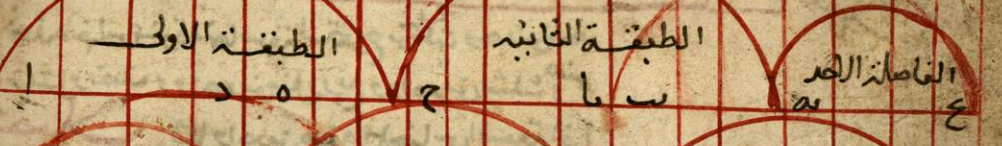 الفاصلة الاحد الطبقة الثانية الطبقة الاولى
يه يب يا ح ه د ا